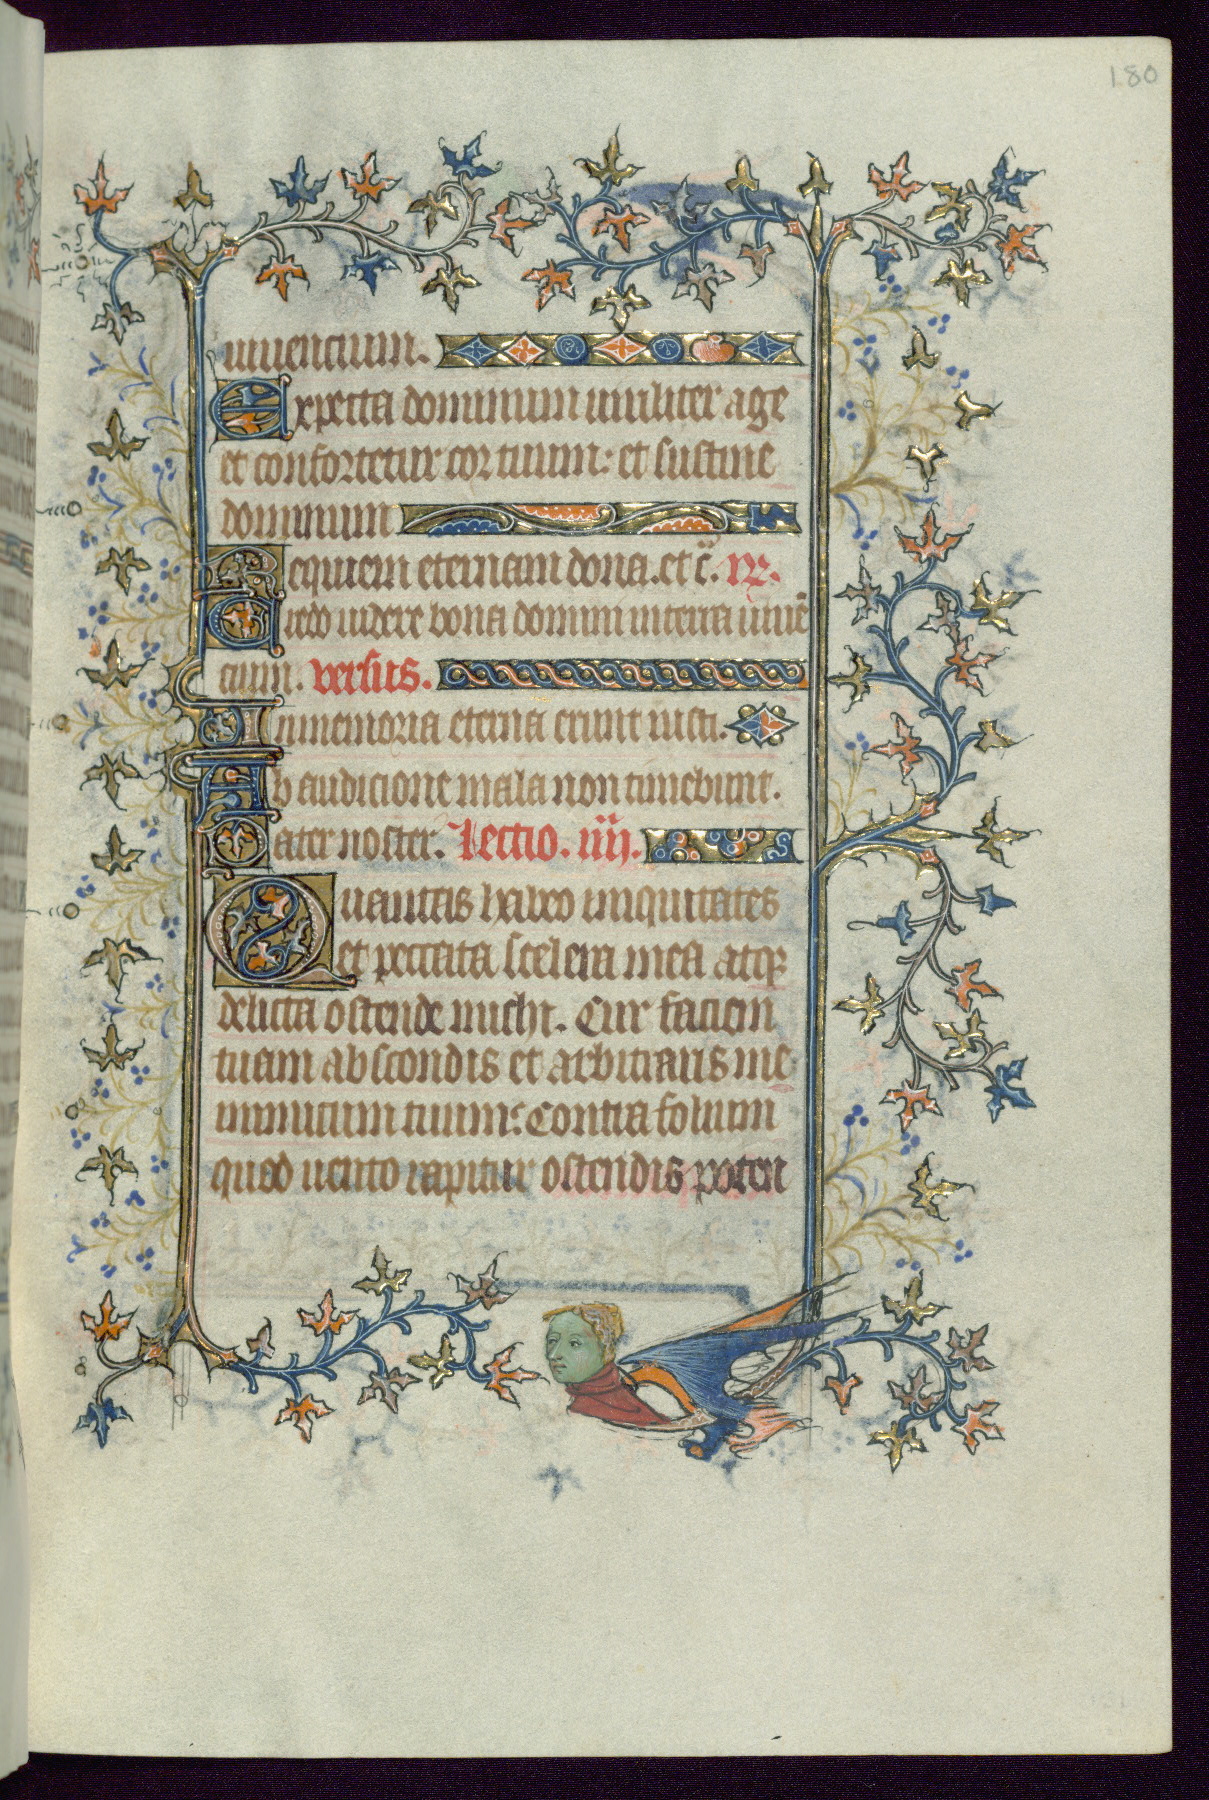 180
uiuencium.
Expecta dominum uiriliter age
et confortetur cor tuum: et sustine
dominum
Requiem eternam dona. et c̄. R.
Credo uidere bona domini in terra uiuē
cium. versus.
In memoria eterna erunt iusti.
Ab audicione mala non timebunt.
Pater noster. Lectio. iiij.
Quantas habeo iniquitates
et peccata scelera mea atq;
delicta ostende michi. Cur faciem
tuam abscondis et arbitraris me
inimicum tuum: Contra folium
quod uento rapitur ostendis poten